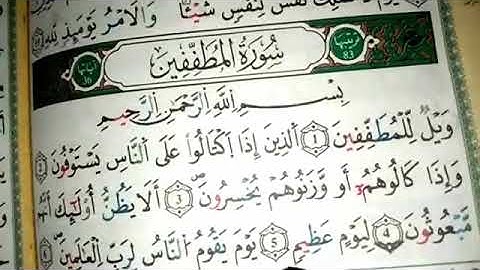 نَفْسٌ لِنَفْسٍ شَيْئًا وَالْأَمْرُ يَوْمَئِذٍ لِلَّهِ
آياتها 36 سُورَةُ الْمُطَفِّفِينَ ترتيبها 83
بِسْمِ اللَّهِ الرَّحْمَٰنِ الرَّحِيمِ
وَيْلٌ لِّلْمُطَفِّفِينَ 1 الَّذِينَ إِذَا اكْتَالُوا عَلَى النَّاسِ يَسْتَوْفُونَ 2
وَإِذَا كَالُوهُمْ أَو وَّزَنُوهُمْ يُخْسِرُونَ 3 أَلَا يَظُنُّ أُولَٰئِكَ أَنَّهُم
مَّبْعُوثُونَ 4 لِيَوْمٍ عَظِيمٍ 5 يَوْمَ يَقُومُ النَّاسُ لِرَبِّ الْعَالَمِينَ 6